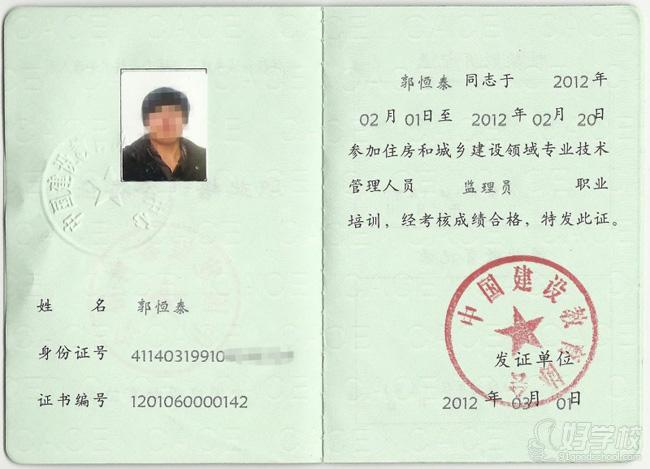 姓 名 郭恒秦
身份证号 41140319910
证书编号 1201060000142
郭恒秦 同志于 2012年
02月 01日至 2012年 02月 20日
参加住房和城乡建设领域专业技术
管理人员 监理员 职业
培训，经考核成绩合格，特发此证。
中国建设教育协会
发证单位
2012 年 03月 01日
好学校
91goodschool.com